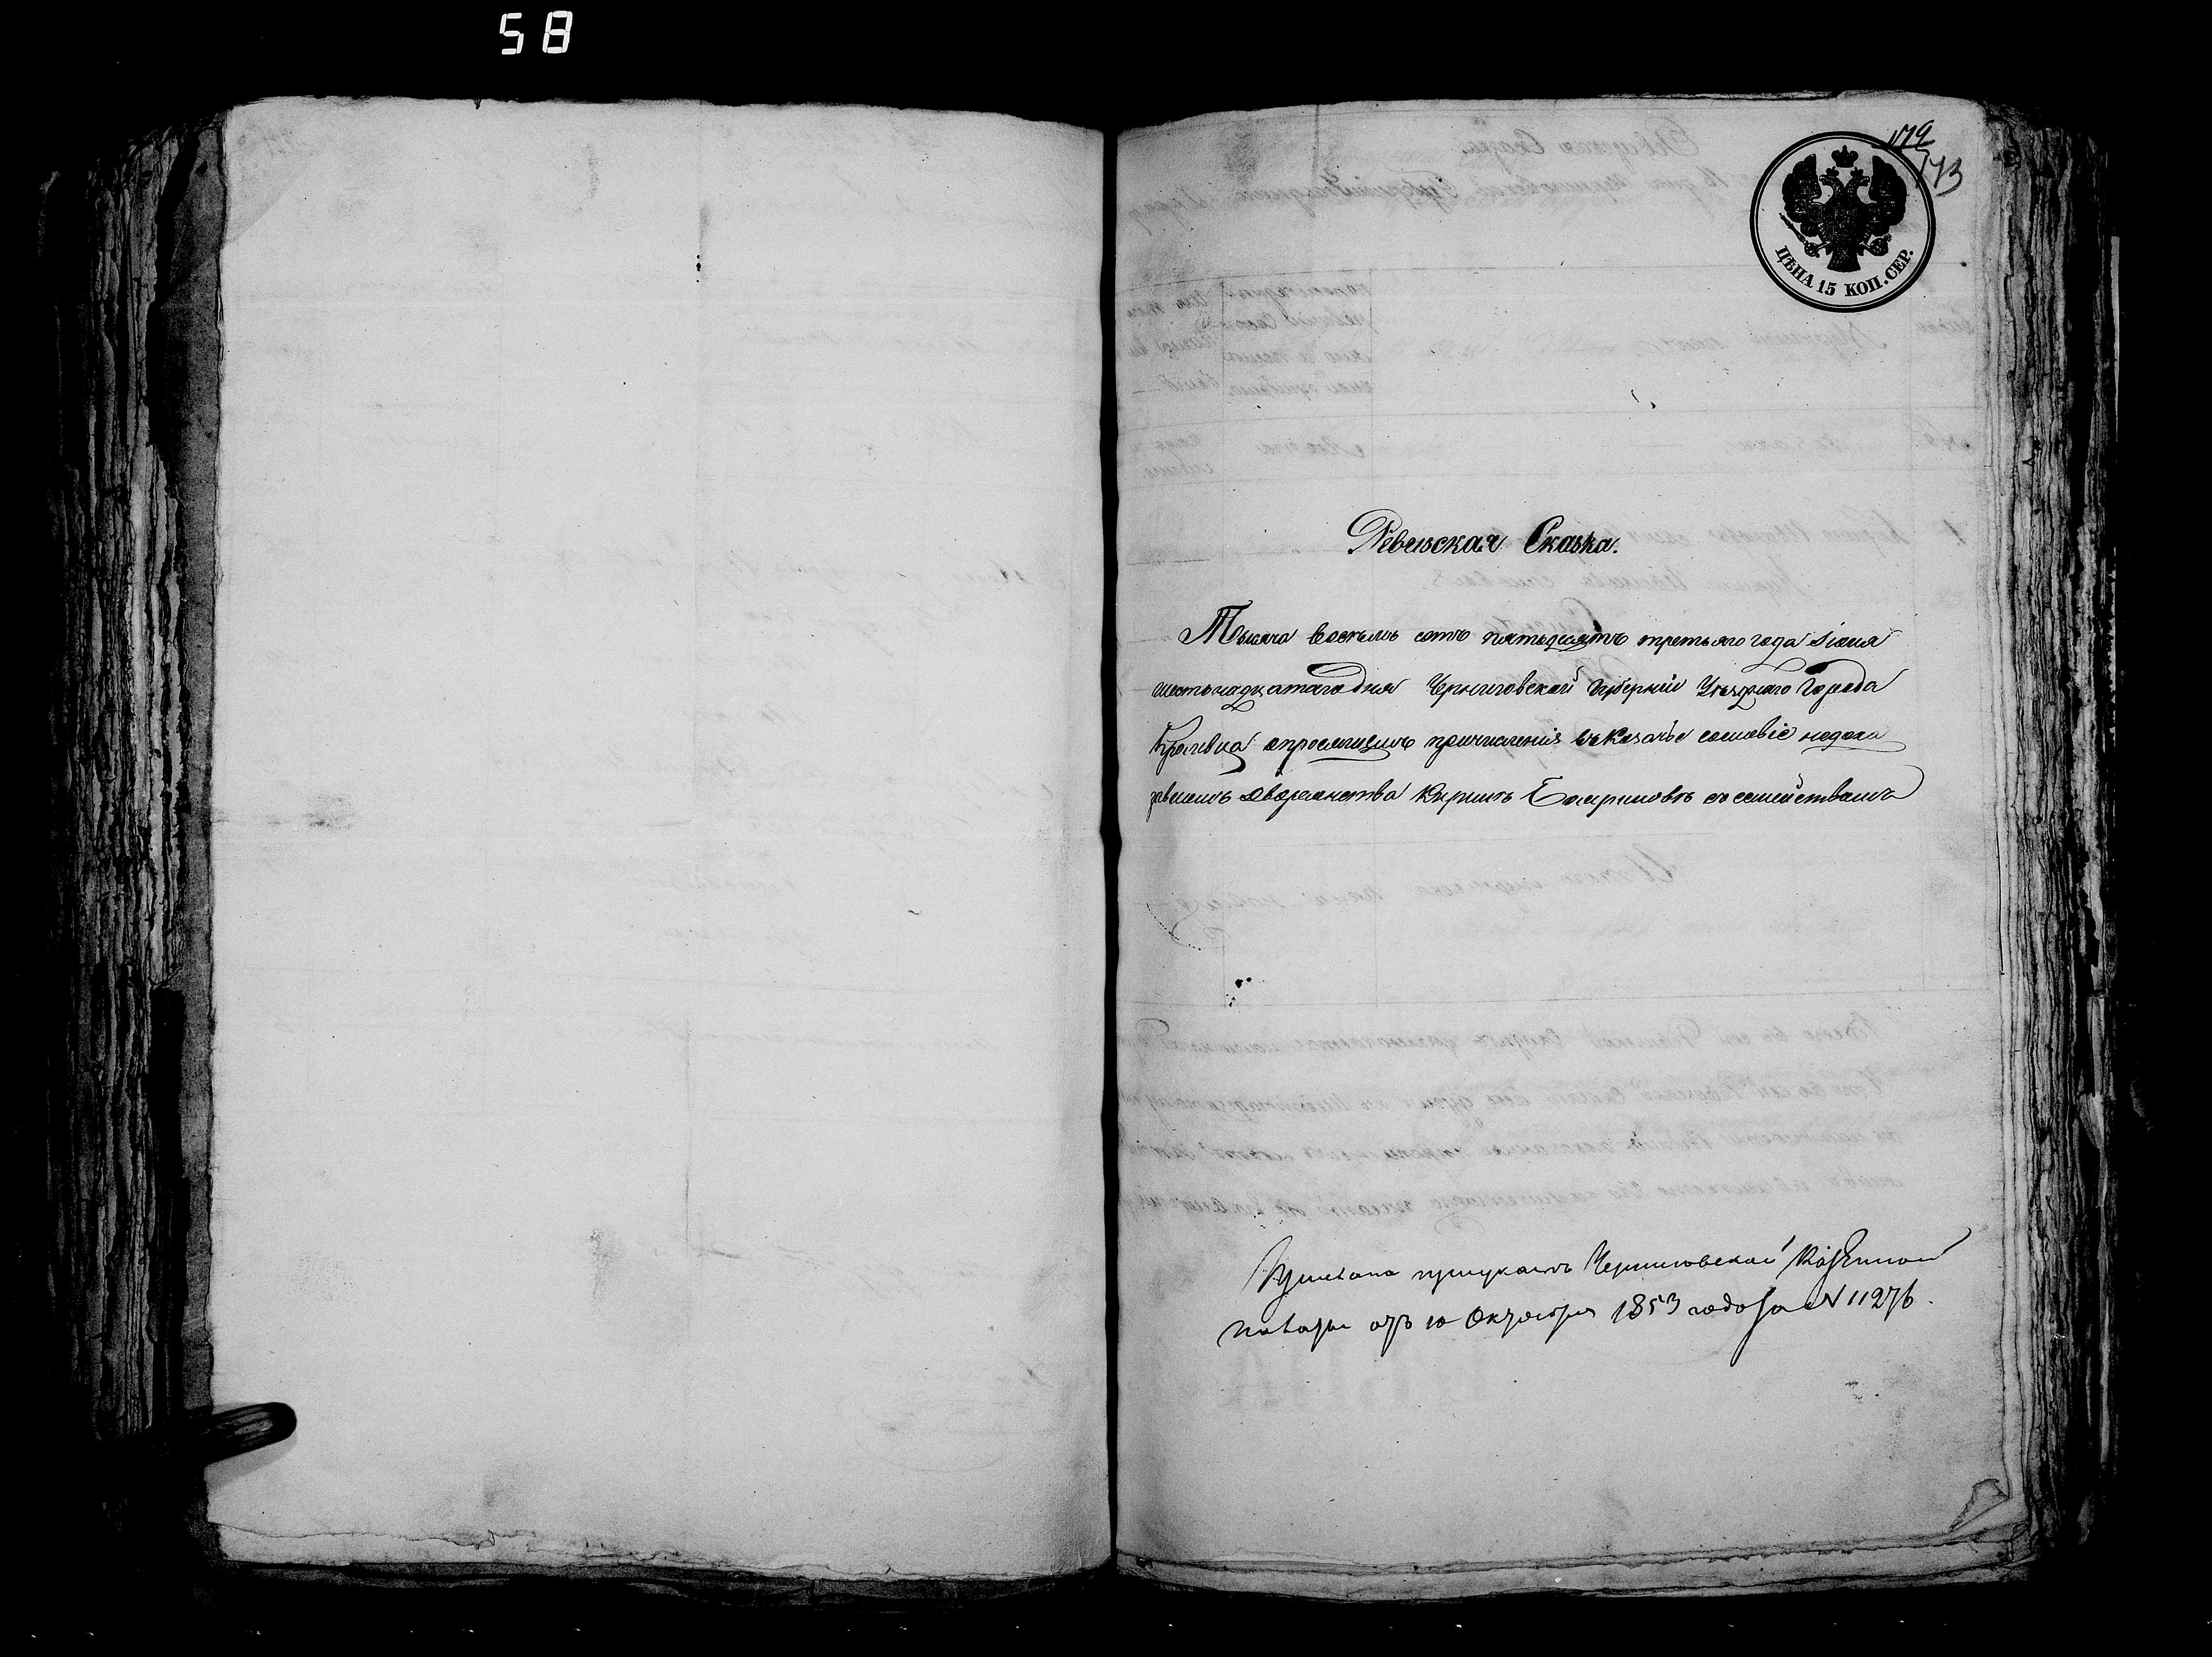 58
172
173
ЦѢНА 15 КОП. СЕР.
Ревизская Сказка.
Тысяча восемь сотъ пятьдесятъ третьяго года Іюня
шестьнадцатого дня Черниговской Губерніи Уѣзднаго Города
Кролевца о просящемъ причисленія въ Козачье сословіе недока
завшемъ дворянства Кирилѣ съ семействомъ
Принята при указѣ Черниговской Казенной
палаты отъ 10 Октября 1853 года за № 11276.